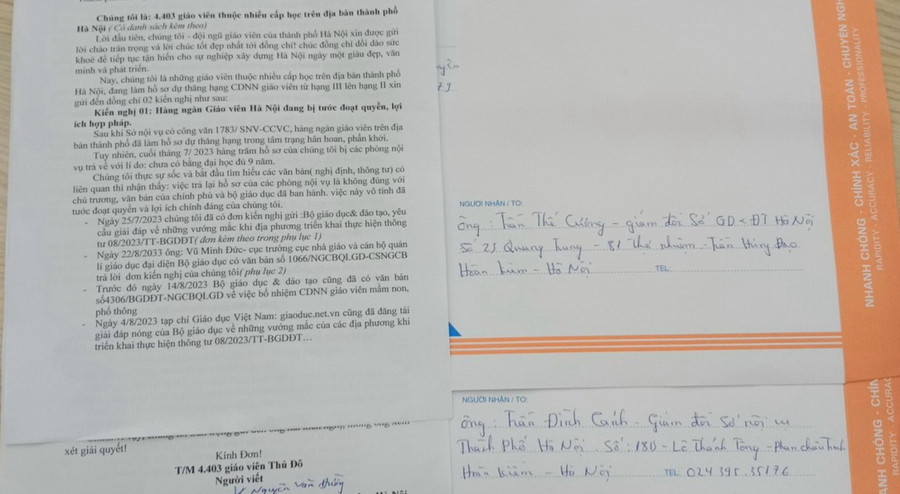 Chúng tôi là: 4.403 giáo viên thuộc nhiều cấp học trên địa bàn thành phố
Hà Nội ( Có danh sách kèm theo)
Lời đầu tiên, chúng tôi - đội ngũ giáo viên của thành phố Hà Nội xin được gửi
lời chào trân trọng và lời chúc tốt đẹp nhất tới đồng chí! chúc đồng chí dồi dào sức
khoẻ để tiếp tục tận hiến cho sự nghiệp xây dựng Hà Nội ngày một giàu đẹp, văn
minh và phát triển.
Nay, chúng tôi là những giáo viên thuộc nhiều cấp học trên địa bàn thành phố
Hà Nội, đang làm hồ sơ dự thăng hạng CDNN giáo viên từ hạng III lên hạng II xin
gửi đến đồng chí 02 kiến nghị như sau:
Kiến nghị 01: Hàng ngàn Giáo viên Hà Nội đang bị tước đoạt quyền, lợi
ích hợp pháp.
Sau khi Sở nội vụ có công văn 1783/ SNV-CCVC, hàng ngàn giáo viên trên địa
bàn thành phố đã làm hồ sơ dự thăng hạng trong tâm trạng hân hoan, phấn khởi.
Tuy nhiên, cuối tháng 7/ 2023 hàng trăm hồ sơ của chúng tôi bị các phòng nội
vụ trả về với lí do: chưa có bằng đại học đủ 9 năm.
Chúng tôi thực sự sốc và bắt đầu tìm hiểu các văn bản( nghị định, thông tư) có
liên quan thì nhận thấy: việc trả lại hồ sơ của các phòng nội vụ là không đúng với
chủ trương, văn bản của chính phủ và bộ giáo dục đã ban hành. việc này vô tình đã
tước đoạt quyền và lợi ích chính đáng của chúng tôi.
- Ngày 25/7/2023 chúng tôi đã có đơn kiến nghị gửi :Bộ giáo dục& đào tạo, yêu
cầu giải đáp về những vướng mắc khi địa phương triển khai thực hiện thông
tư 08/2023/TT-BGDĐT( đơn kèm theo trong phụ lục 1)
- Ngày 22/8/2033 ông: Vũ Minh Đức- cục trưởng cục nhà giáo và cán bộ quản
lí giáo dục đại diện Bộ giáo dục có văn bản số 1066/NGCBQLGD-CSNGCB
trả lời đơn kiến nghị của chúng tôi( phụ lục 2)
- Trước đó ngày 14/8/2023 Bộ giáo dục & đào tạo cũng đã có văn bản
số4306/BGDĐT-NGCBQLGD về việc bổ nhiệm CDNN giáo viên mầm non,
phổ thông
- Ngày 4/8/2023 tạp chí Giáo dục Việt Nam: giaoduc.net.vn cũng đã đăng tải
giải đáp nóng của Bộ giáo dục về những vướng mắc của các địa phương khi
triển khai thực hiện thông tư 08/2023/TT-BGDĐT…
xét giải quyết!
Kính Đơn!
T/M 4.403 giáo viên Thủ Đô
Người viết
Nguyễn Văn
NGƯỜI NHẬN / TO:
Ông: Trần Thế Cương - giám đốc Sở GD & ĐT Hà Nội
Số 23 Quang Trung - 81 Thợ Nhuộm - Trần Hưng Đạo
Hoàn Kiếm - Hà Nội
TEL:
NGƯỜI NHẬN / TO:
Ông: Trần Đình Cảnh - Giám đốc Sở nội vụ
Thành Phố Hà Nội. Số: 180 - Lê Thánh Tông - Phan Chu Trinh
Hoàn Kiếm - Hà Nội
TEL: 024 395.35176
NHANH CHÓNG - CHÍNH XÁC - AN TOÀN - CHUYÊN NGH
RAPIDITY - ACCURACY - RELIABILITY - PROFESSIONALITY
ANH CHÓNG - CHÍN
RAPIDITY - ACCURAC